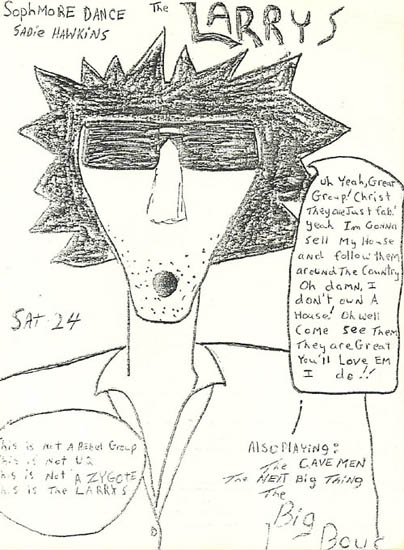 SophMORE DANCE
SADiE HAWKiNS
The LARRYS
Uh Yeah, Great
Group! Christ
They are Just fab!
yeah I'm Gonna
Sell My House
and follow them
around The Country
Oh damn, I
don't own A
House! Oh well
Come See Them
They are Great
You'll Love EM
I do!!
SAT 24
his is Not A Rebel Group
his is Not U2
his is Not A ZYGOTE
his is The LARRYS
ALSO PlAYiNG:
The CAVE MEN
The NEXT Big Thing
The
Big
Boys